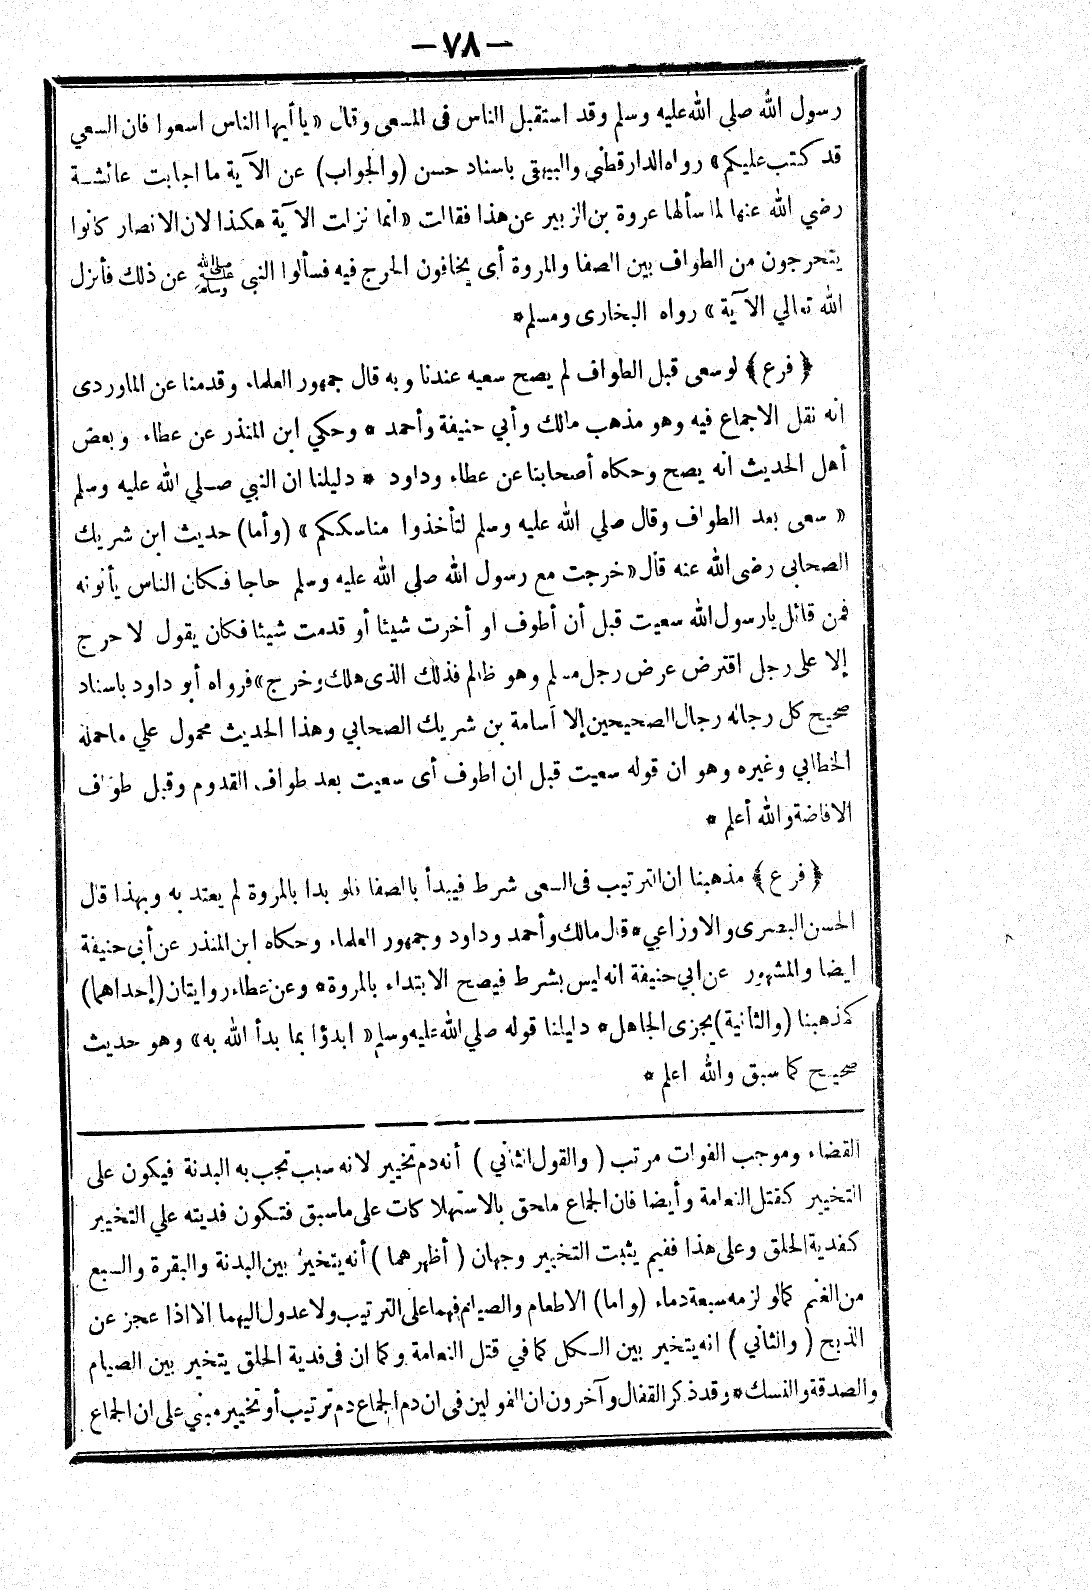 —٧٨—
رسول الله صلى الله عليه وسلم وقد استقبل الناس فى المسعى وقال «يا أيها الناس اسعوا فان السعي
قد كتب عليكم» رواه الدارقطني والبيهقى باسناد حسن (والجواب) عن الآية ما اجابت عائشة
رضي الله عنها لما سألها عروة بن الزبير عن هذا فقالت «انما نزلت الآية هكذا لان الانصار كانوا
يتحرجون من الطواف بين الصفا والمروة أى يخافون الحرج فيه فسألوا النبى ﷺ عن ذلك فأنزل
الله تعالي الآية» رواه البخارى ومسلم *
﴿فرع﴾ لو سعى قبل الطواف لم يصح سعيه عندنا وبه قال جمهور العلماء وقدمنا عن الماوردى
انه نقل الاجماع فيه وهو مذهب مالك وأبي حنيفة وأحمد * وحكي ابن المنذر عن عطاء وبعض
أهل الحديث انه يصح وحكاه أصحابنا عن عطاء وداود * دليلنا ان النبي صلي الله عليه وسلم
« سعى بعد الطواف وقال صلي الله عليه وسلم لتأخذوا مناسككم » (وأما) حديث ابن شريك
الصحابى رضى الله عنه قال «خرجت مع رسول الله صلي الله عليه وسلم حاجا فكان الناس يأتونه
فمن قائل يارسول الله سعيت قبل أن أطوف او أخرت شيئا أو قدمت شيئا فكان يقول لا حرج
إلا على رجل اقترض عرض رجل مسلم وهو ظالم فذلك الذى هلك وخرج» فرواه أبو داود باسناد
صحيح كل رجاله رجال الصحيحين إلا أسامة بن شريك الصحابي وهذا الحديث محمول علي ماحمله
الخطابي وغيره وهو ان قوله سعيت قبل ان اطوف أى سعيت بعد طواف القدوم وقبل طواف
الافاضة والله أعلم *
﴿فرع﴾ مذهبنا ان الترتيب فى السعى شرط فيبدأ بالصفا فلو بدا بالمروة لم يعتد به وبهذا قال
الحسن البصرى والاوزاعي * قال مالك وأحمد وداود وجمهور العلماء وحكاه ابن المنذر عن أبى حنيفة
ايضا والمشهور عن ابي حنيفة انه ليس بشرط فيصح الابتداء بالمروة * وعن عطاء روايتان (إحداهما)
كمذهبنا (والثانية) يجزى الجاهل * دليلنا قوله صلي الله عليه وسلم « ابدؤا بما بدأ الله به» وهو حديث
صحيح كما سبق والله اعلم *
القضاء وموجب الفوات مرتب ( والقول الثاني ) أنه دم تخيير لانه سبب تجب به البدنة فيكون على
التخيير كقتل النعامة وأيضا فان الجماع ملحق بالاستهلا كات على ماسبق فتكون فديته علي التخيير
كفدية الحلق وعلى هذا ففيم يثبت التخيير وجهان ( أظهرهما ) أنه يتخير بين البدنة والبقرة والسبع
من الغنم كمالو لزمه سبعة دماء (واما) الاطعام والصيام فهما على الترتيب ولا عدول اليهما الا اذا عجز عن
الذبح ( والثاني ) انه يتخير بين الكل كما في قتل النعامة وكما ان فى فدية الحلق يتخير بين الصيام
والصدقة والنسك * وقد ذكر القفال وآخرون ان القولين فى ان دم الجماع دم ترتيب أو تخيير مبني على ان الجماع